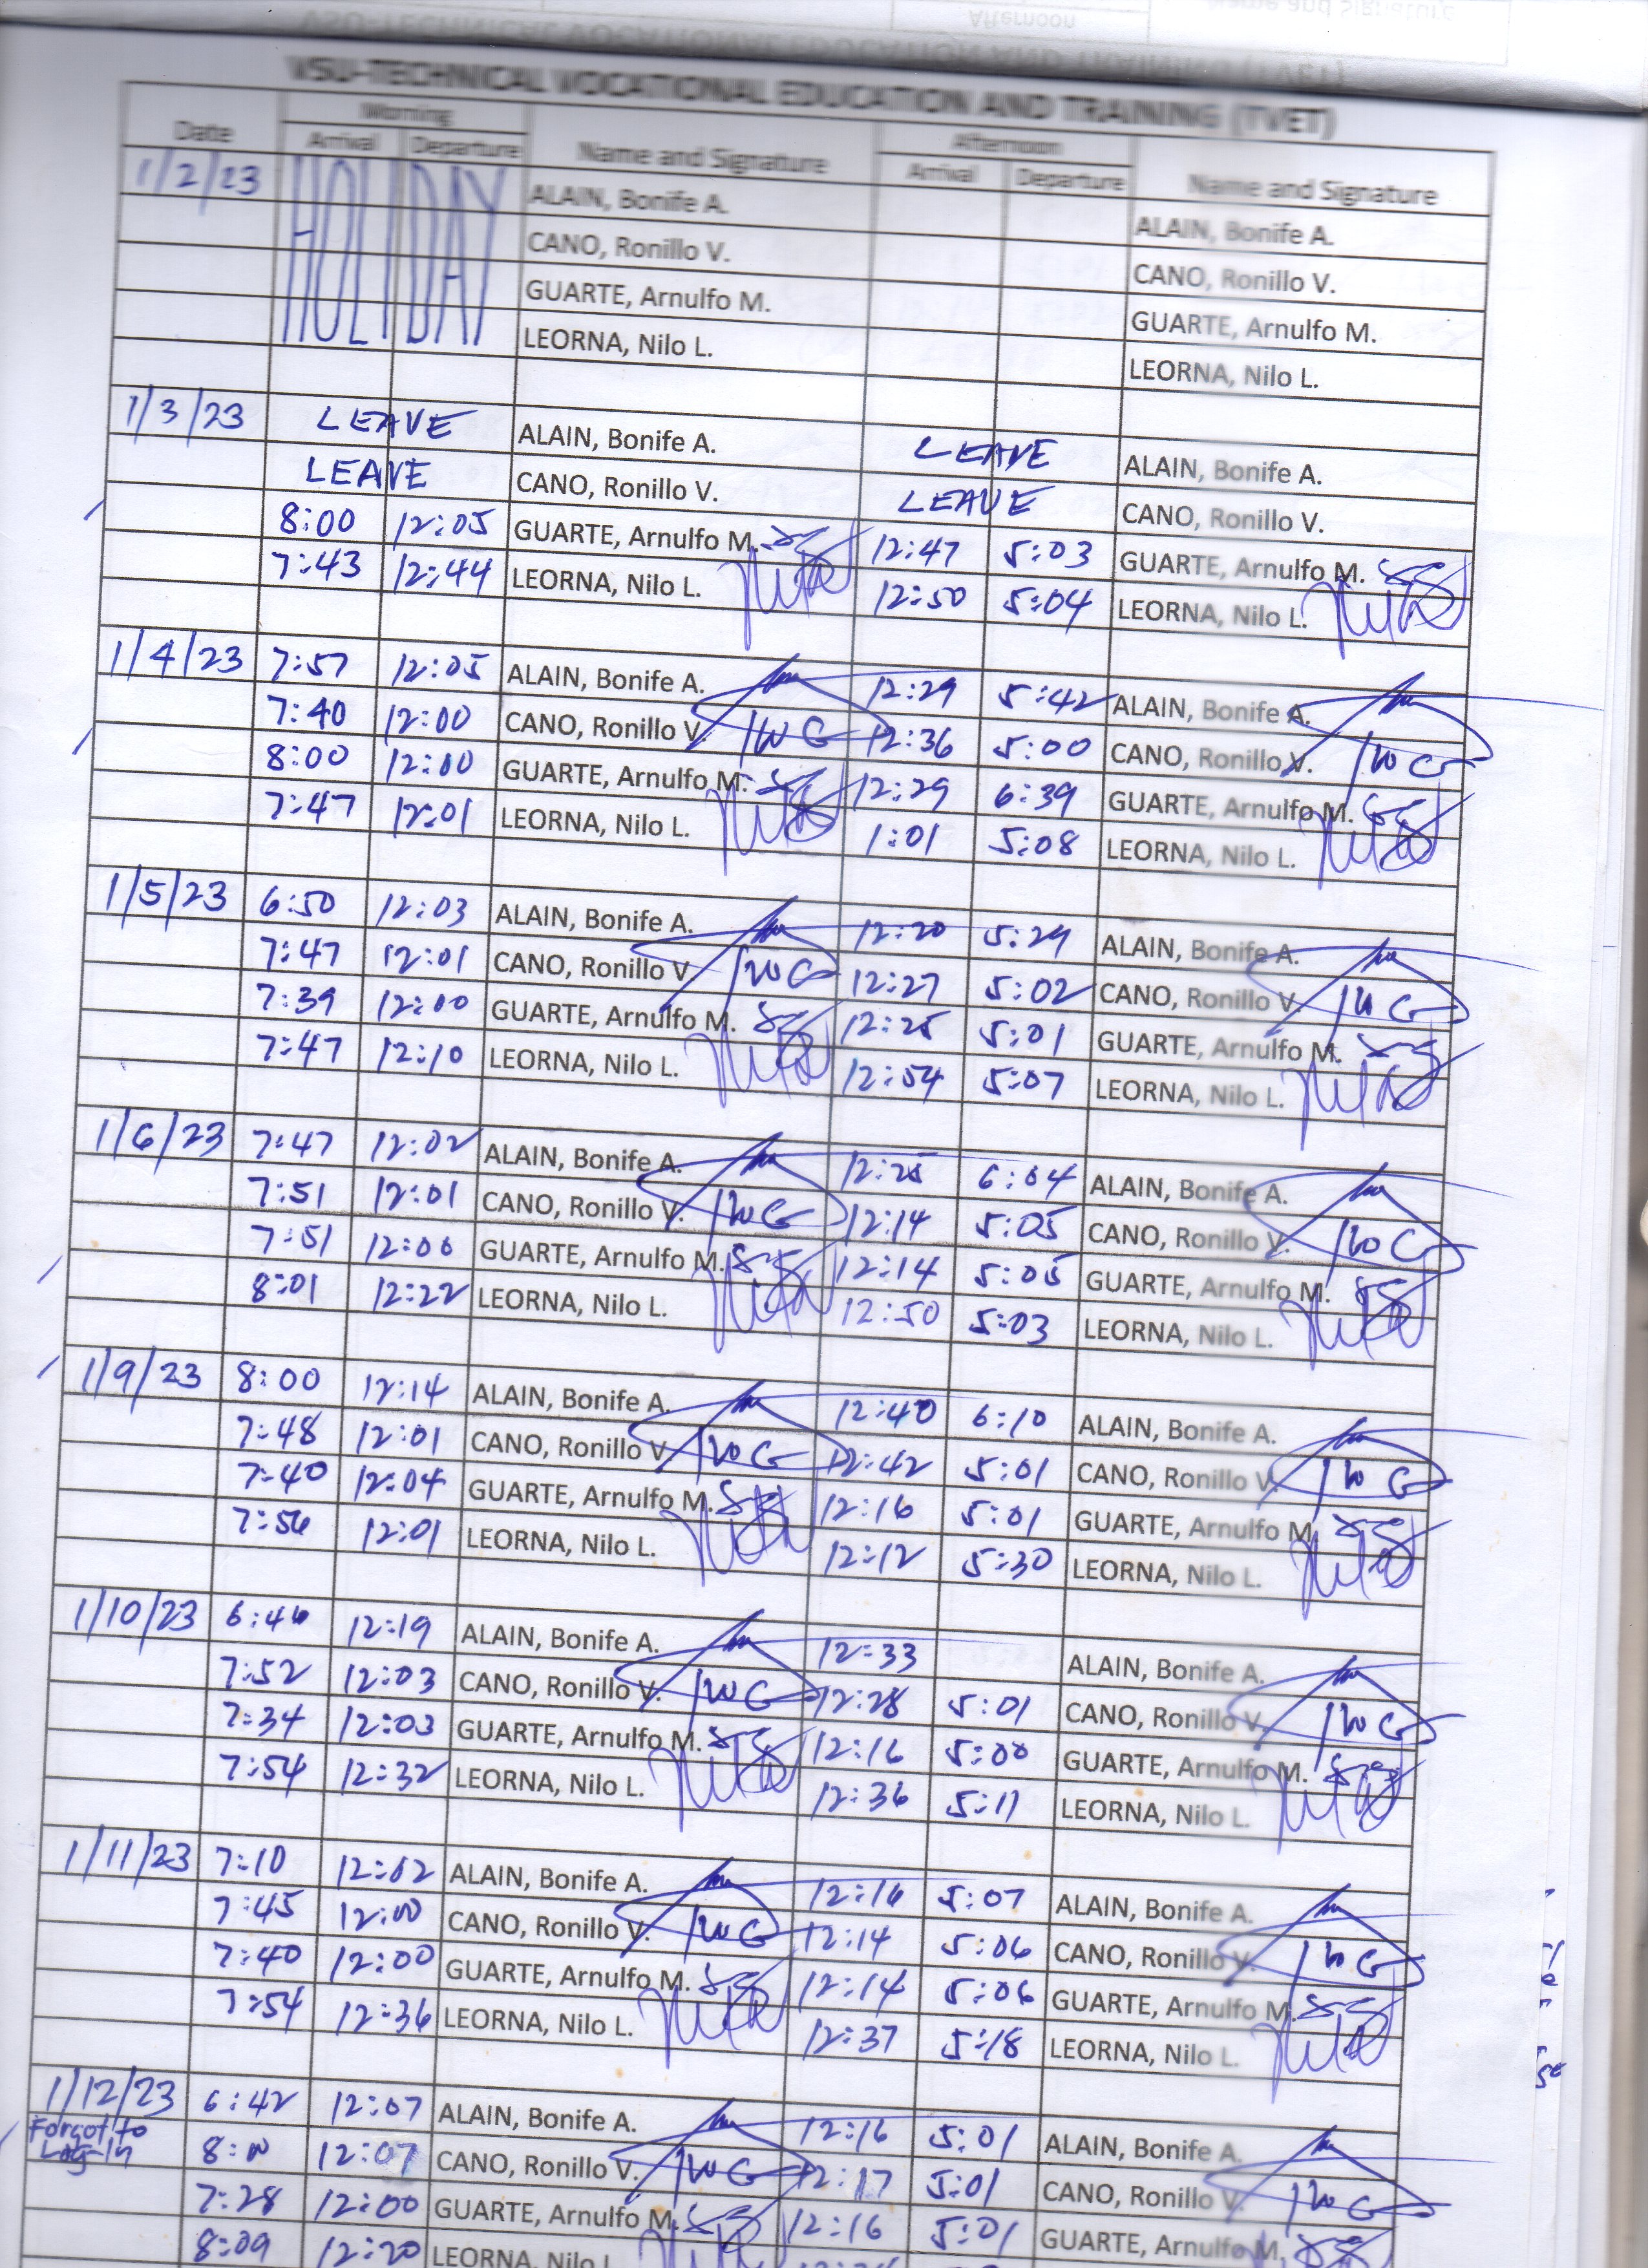 VSU-TECHNICAL VOCATIONAL EDUCATION AND TRAINING (TVET)
Date Morning Name and Signature Afternoon Name and Signature
Arrival Departure Arrival Departure
1/2/23 HOLIDAY ALAIN, Bonife A. ALAIN, Bonife A.
CANO, Ronillo V. CANO, Ronillo V.
GUARTE, Arnulfo M. GUARTE, Arnulfo M.
LEORNA, Nilo L. LEORNA, Nilo L.
1/3/23 LEAVE ALAIN, Bonife A. LEAVE ALAIN, Bonife A.
LEAVE CANO, Ronillo V. LEAVE CANO, Ronillo V.
8:00 12:05 GUARTE, Arnulfo M. 12:47 5:03 GUARTE, Arnulfo M.
7:43 12:44 LEORNA, Nilo L. 12:50 5:04 LEORNA, Nilo L.
1/4/23 7:57 12:05 ALAIN, Bonife A. 12:29 5:42 ALAIN, Bonife A.
7:40 12:00 CANO, Ronillo V. 12:36 5:00 CANO, Ronillo V.
8:00 12:00 GUARTE, Arnulfo M. 12:29 6:39 GUARTE, Arnulfo M.
7:47 12:01 LEORNA, Nilo L. 1:01 5:08 LEORNA, Nilo L.
1/5/23 6:50 12:03 ALAIN, Bonife A. 12:20 5:29 ALAIN, Bonife A.
7:47 12:01 CANO, Ronillo V. 12:27 5:02 CANO, Ronillo V.
7:39 12:00 GUARTE, Arnulfo M. 12:25 5:01 GUARTE, Arnulfo M.
7:47 12:10 LEORNA, Nilo L. 12:54 5:07 LEORNA, Nilo L.
1/6/23 7:47 12:02 ALAIN, Bonife A. 12:25 6:04 ALAIN, Bonife A.
7:51 12:01 CANO, Ronillo V. 12:14 5:05 CANO, Ronillo V.
7:51 12:00 GUARTE, Arnulfo M. 12:14 5:05 GUARTE, Arnulfo M.
8:01 12:22 LEORNA, Nilo L. 12:50 5:03 LEORNA, Nilo L.
1/9/23 8:00 12:14 ALAIN, Bonife A. 12:40 6:10 ALAIN, Bonife A.
7:48 12:01 CANO, Ronillo V. 12:42 5:01 CANO, Ronillo V.
7:40 12:04 GUARTE, Arnulfo M. 12:16 5:01 GUARTE, Arnulfo M.
7:56 12:01 LEORNA, Nilo L. 12:12 5:30 LEORNA, Nilo L.
1/10/23 6:46 12:19 ALAIN, Bonife A. 12:33 ALAIN, Bonife A.
7:52 12:03 CANO, Ronillo V. 12:28 5:01 CANO, Ronillo V.
7:34 12:03 GUARTE, Arnulfo M. 12:16 5:00 GUARTE, Arnulfo M.
7:54 12:32 LEORNA, Nilo L. 12:36 5:11 LEORNA, Nilo L.
1/11/23 7:10 12:02 ALAIN, Bonife A. 12:16 5:07 ALAIN, Bonife A.
7:45 12:00 CANO, Ronillo V. 12:14 5:06 CANO, Ronillo V.
7:40 12:00 GUARTE, Arnulfo M. 12:14 5:06 GUARTE, Arnulfo M.
7:54 12:36 LEORNA, Nilo L. 12:37 5:18 LEORNA, Nilo L.
1/12/23 6:42 12:07 ALAIN, Bonife A. 12:16 5:01 ALAIN, Bonife A.
Forgot to Log-In 8:00 12:07 CANO, Ronillo V. 12:17 5:01 CANO, Ronillo V.
7:28 12:00 GUARTE, Arnulfo M. 12:16 5:01 GUARTE, Arnulfo M.
8:09 12:20 LEORNA, Nilo L.